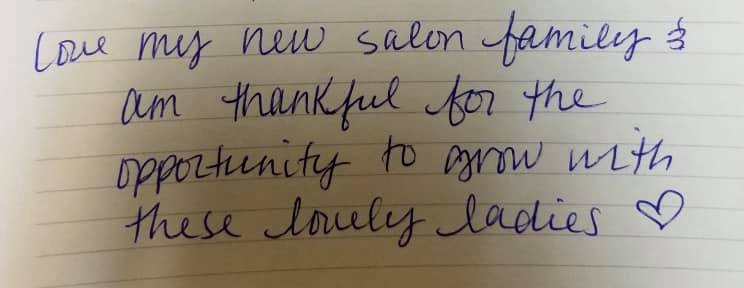 Love my new salon family &
am thankful for the
opportunity to grow with
these lovely ladies ♡